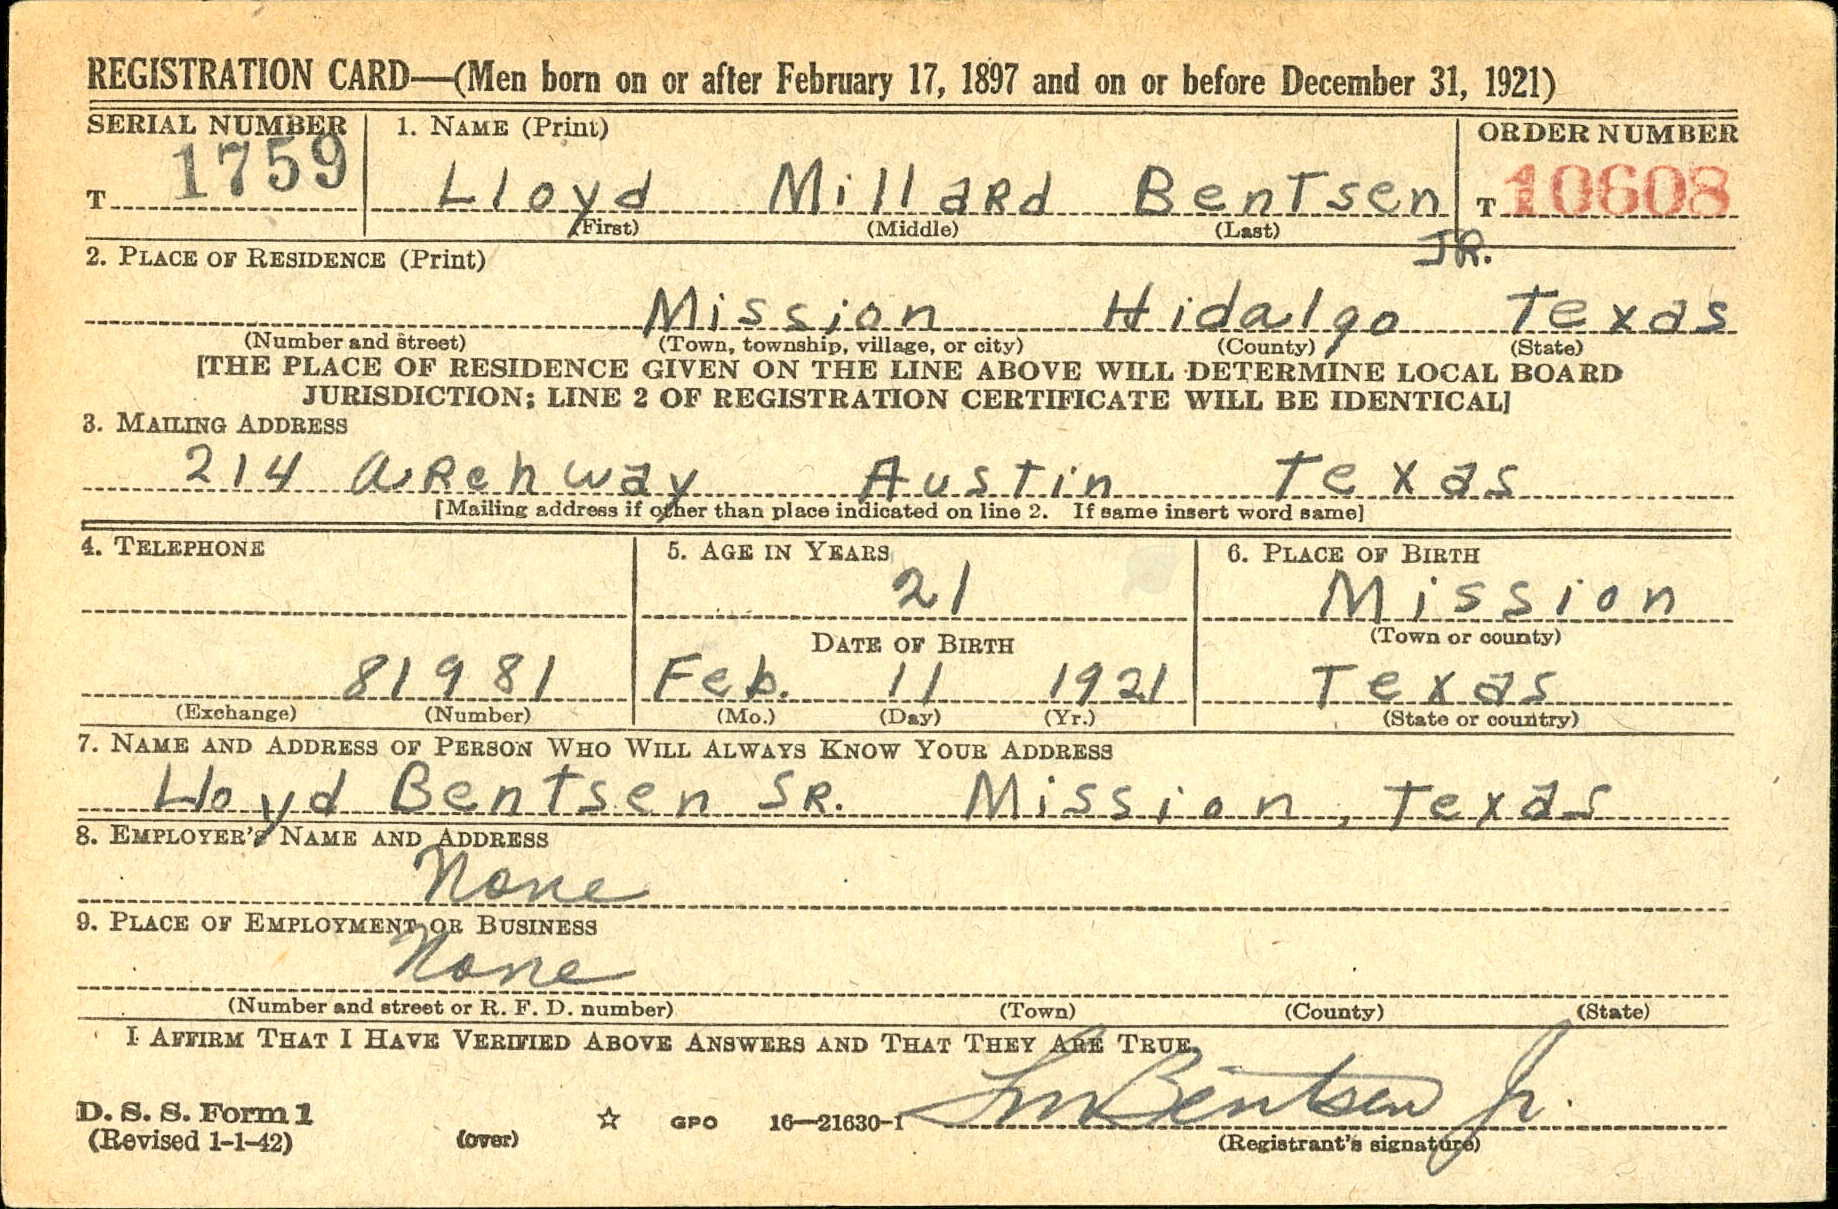 REGISTRATION CARD—(Men born on or after February 17, 1897 and on or before December 31, 1921)
SERIAL NUMBER 1. NAME (Print) ORDER NUMBER
T 1759 Lloyd Millard Bentsen T 10608
(First) (Middle) (Last)
JR.
2. PLACE OF RESIDENCE (Print)
Mission Hidalgo Texas
(Number and street) (Town, township, village, or city) (County) (State)
[THE PLACE OF RESIDENCE GIVEN ON THE LINE ABOVE WILL DETERMINE LOCAL BOARD
JURISDICTION; LINE 2 OF REGISTRATION CERTIFICATE WILL BE IDENTICAL]
3. MAILING ADDRESS
214 Archway Austin Texas
[Mailing address if other than place indicated on line 2. If same insert word same]
4. TELEPHONE 5. AGE IN YEARS 6. PLACE OF BIRTH
21 Mission
DATE OF BIRTH (Town or county)
81981 Feb. 11 1921 Texas
(Exchange) (Number) (Mo.) (Day) (Yr.) (State or country)
7. NAME AND ADDRESS OF PERSON WHO WILL ALWAYS KNOW YOUR ADDRESS
Lloyd Bentsen SR. Mission, Texas
8. EMPLOYER'S NAME AND ADDRESS
None
9. PLACE OF EMPLOYMENT OR BUSINESS
None
(Number and street or R. F. D. number) (Town) (County) (State)
I AFFIRM THAT I HAVE VERIFIED ABOVE ANSWERS AND THAT THEY ARE TRUE.
LM Bentsen Jr.
D. S. S. Form 1 ☆ GPO 16—21630-1
(Revised 1-1-42) (over) (Registrant's signature)